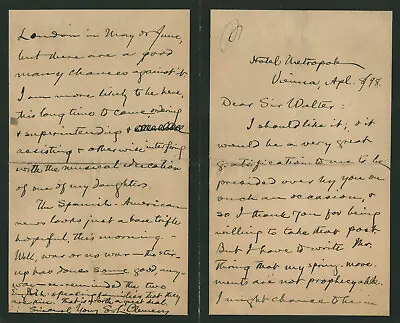 Hotel Metropole
Vienna, Apl. 8/98.
Dear Sir Walter:
I should like it; & it
would be a very great
gratification to me to be
presided over by you on
such an occasion, &
so I thank you for being
willing to take that post
But I have to write Mr.
Thring that my spring move-
ments are not prophecyable.
I might chance to be in
London in May or June,
but there are a good
many chances against it.
I am more likely to be here,
this long time to come, aiding
& superintending &
assisting & otherwise interfering
with the musical education
of one of my daughters.
The Spanish-American
news looks just a base trifle
hopeful, this morning.
Well, war or no war — the stir-
up has done some good any-
way — re-reminded the two
English-speaking families that they
are one. That is a great deal.
Sincerely Yours SL Clemens